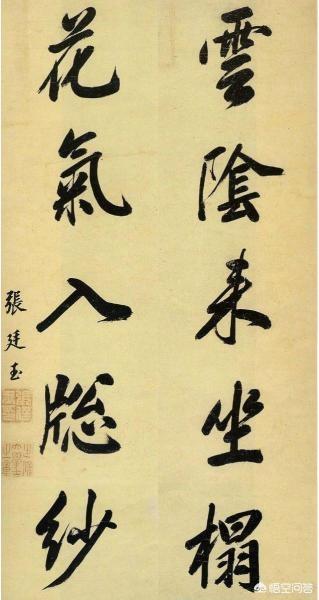 雲陰来坐榻
花氣入牕紗
張廷玉
悟空问答